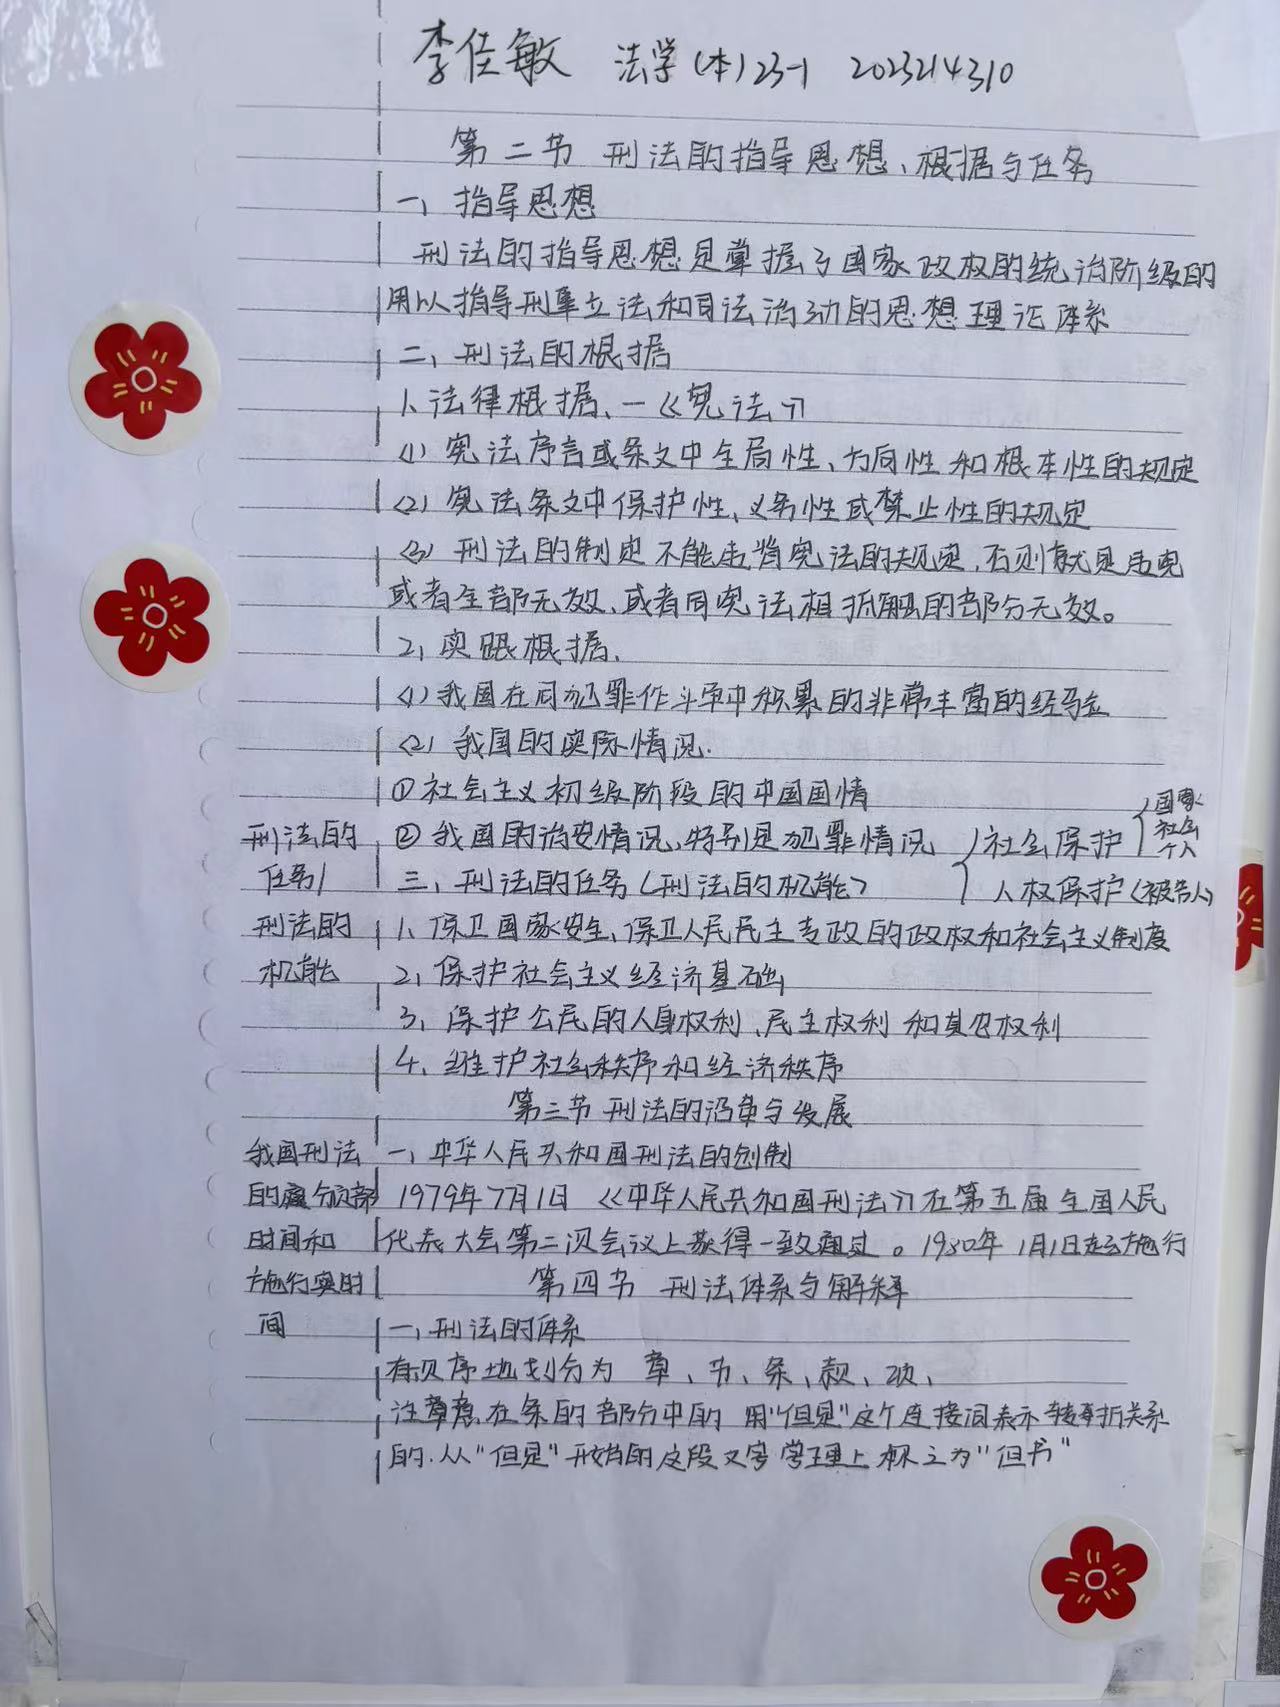 李佳敏 法学(本)23-1 2023214310
第二节 刑法的指导思想、根据与任务
一、指导思想
刑法的指导思想是掌握了国家政权的统治阶级的
用以指导刑事立法和司法活动的思想理论体系
二、刑法的根据
1、法律根据、一《宪法》
(1) 宪法序言或条文中全局性、方向性和根本性的规定
(2) 宪法条文中保护性、义务性或禁止性的规定
(3) 刑法的制定不能违背宪法的规定，否则就是违宪
或者全部无效、或者同宪法相抵触的部分无效。
2、实践根据、
(1) 我国在同犯罪作斗争中积累的非常丰富的经验
(2) 我国的实际情况.
①社会主义初级阶段的中国国情
②我国的治安情况、特别是犯罪情况
社会保护
国家
社会
个人
刑法的
任务/
刑法的
机能
三、刑法的任务(刑法的机能)
人权保护(被告人)
1、保卫国家安全、保卫人民民主专政的政权和社会主义制度
2、保护社会主义经济基础
3、保护公民的人身权利、民主权利和其他权利
4、维护社会秩序和经济秩序
第三节 刑法的沿革与发展
我国刑法
的 颁部
时间和
施行实时
间
一、中华人民共和国刑法的创制
1979年7月1日《中华人民共和国刑法》在第五届全国人民
代表大会第二次会议上获得一致通过。1980年1月1日起施行
第四节 刑法体系与解释
一、刑法的体系
有顺序地划分为 章、节、条、款、项、
注意在条的部分中的 用"但是"这个连接词表示转折关系
的.从"但是"开始的这段文字学理上称之为"但书"